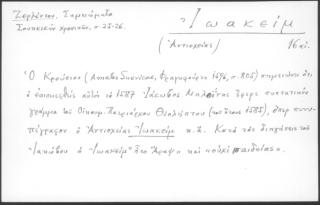 Ζερλέντου, Σημειώματα
Σουηκιῶν χρονικῶν, σ. 25-26.
Ἰωακείμ
(Ἀντιοχείας) 16 αἰ.
Ὁ Κρούσιος (Annales Suevicae, Φραγφούρτη 1596, σ. 805) σημειώνει ὅτι
ὁ ἐπισκεφθεὶς αὐτὸν τὸ 1587 Ἰάκωβος Μηλοΐτης ἔφερε συστατικὸν
γράμμα τοῦ Οἰκουμ. Πατριάρχου Θεολήπτου (τοῦ ἔτους 1585), ὅπερ συνυ-
πέγραφον ὁ Ἀντιοχείας Ἰωακείμ κ.ἄ. Κατὰ τὰς διηγήσεις τοῦ
Ἰακώβου ὁ Ἰωακεὶμ "ἦτο Ἄραψ" καὶ "οὐχὶ παιδείας".